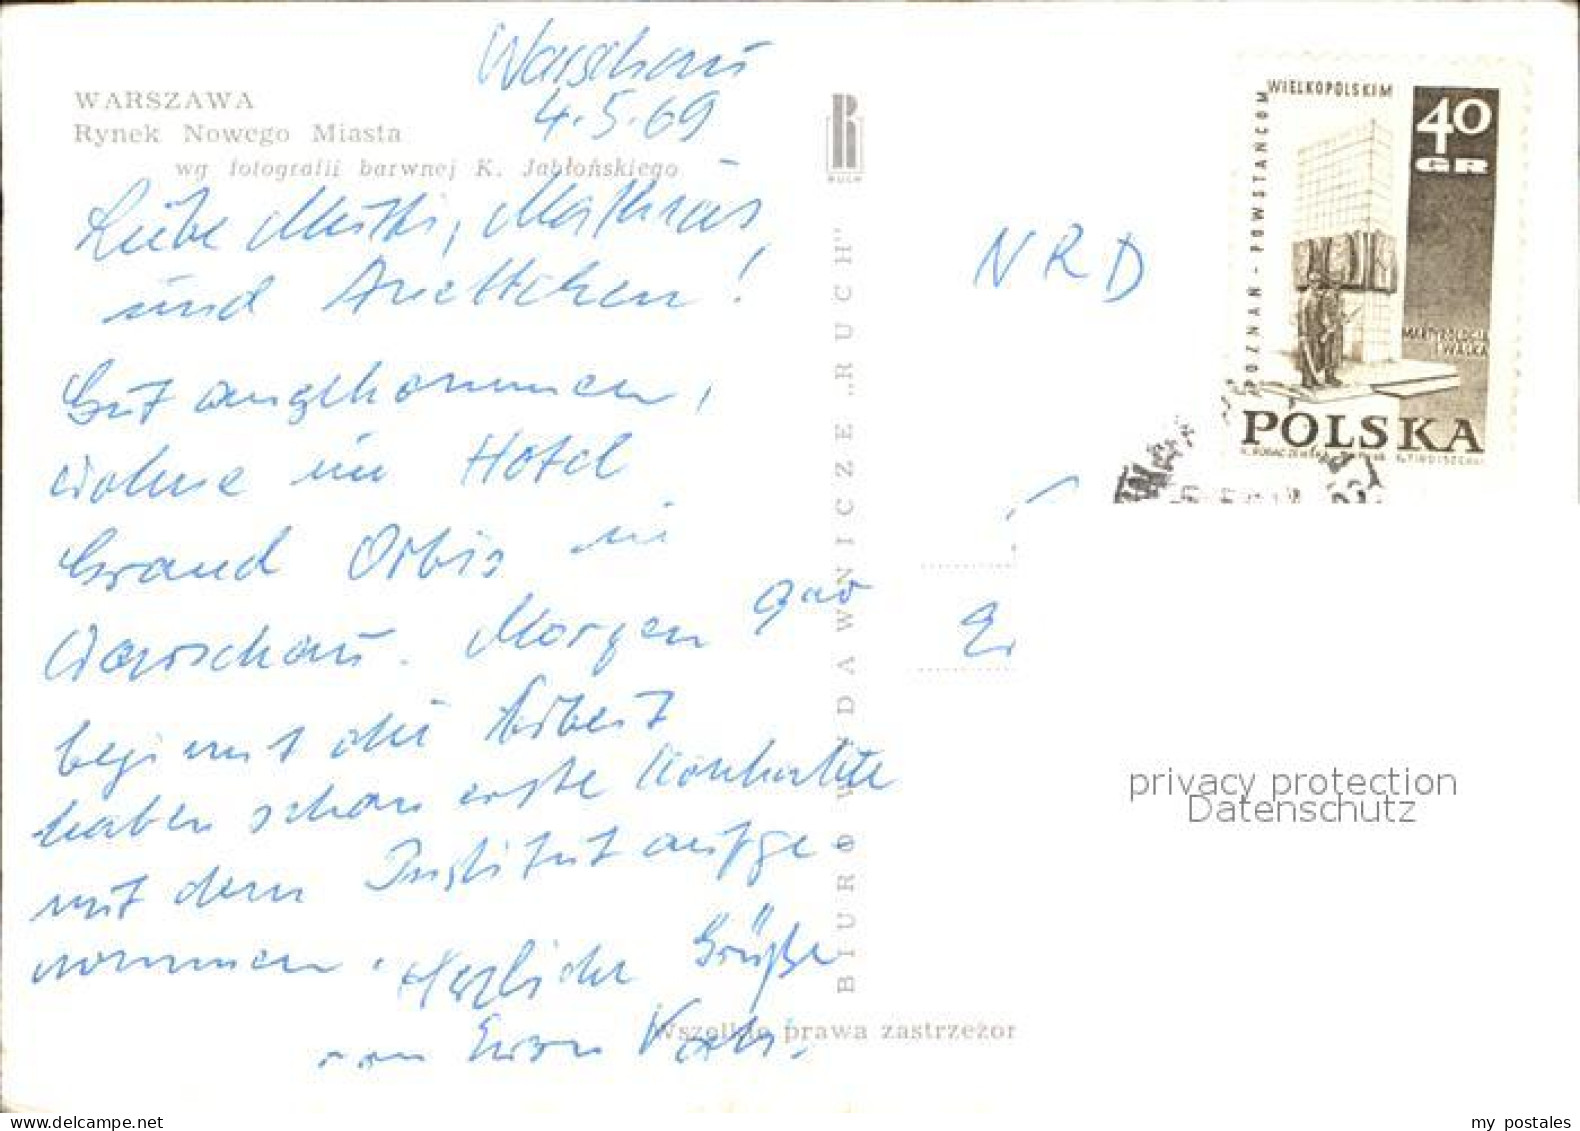 Warschau
4.5.69
WARSZAWA
Rynek Nowego Miasta
wg fotografii barwnej K. Jabłońskiego
Liebe Mutti, Matthias
und Anettchen!
Gut angekommen,
wohne im Hotel
Grand Orbis in
Warschau. Morgen
beginnt die Arbeit
haben schon erste Kontakte
mit dem Institut aufge-
nommen. Herzliche Grüße
von Euren
Wszelkie prawa zastrzeżon
RUCH
BIURO WYDAWNICZE „RUCH"
NRD
POZNAŃ - POWSTAŃCOM
WIELKOPOLSKIM
40
GR
MARTYROLOGIA
I WALKA
POLSKA
privacy protection
Datenschutz
my postales